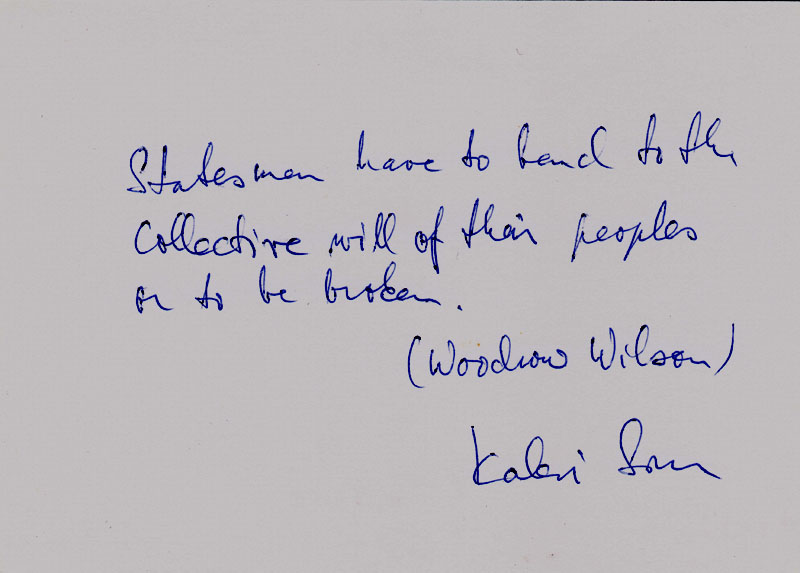 Statesmen have to bend to the
collective will of their peoples
or to be broken.
(Woodrow Wilson)
Kalevi